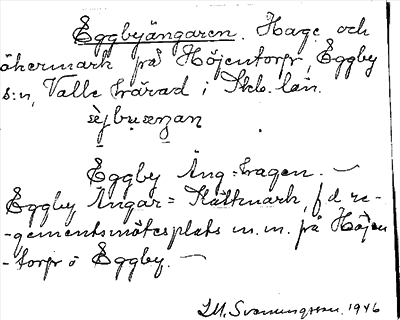 Eggbyängaren. Hage och
åkermark på Höjentorp, Eggby
s:n, Valle härad i Skb. län.
Eggby Äng=hagen. —
Eggby Ängar = Slåttmark, f.d. re-
-gementsmötesplats m.m. på Höjen
-torp o Eggby. —
1946